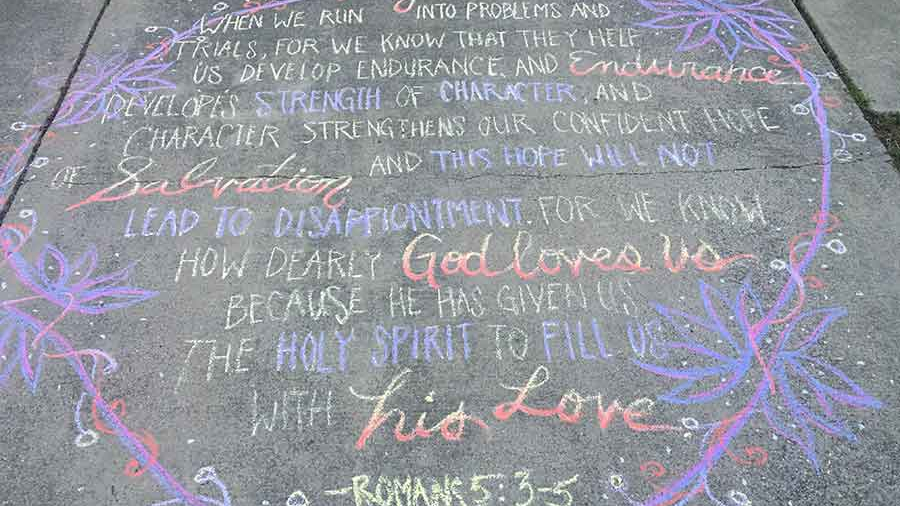 WHEN WE RUN INTO PROBLEMS AND
TRIALS, FOR WE KNOW THAT THEY HELP
US DEVELOP ENDURANCE. AND Endurance
DEVELOPES STRENGTH OF CHARACTER, AND
CHARACTER STRENGTHENS OUR CONFIDENT HOPE
OF Salvation. AND THIS HOPE WILL NOT
LEAD TO DISAPPIONTMENT. FOR WE KNOW
HOW DEARLY God loves Us
BECAUSE HE HAS GIVEN US
THE HOLY SPIRIT TO FILL US
WITH his Love
-ROMANS 5:3-5